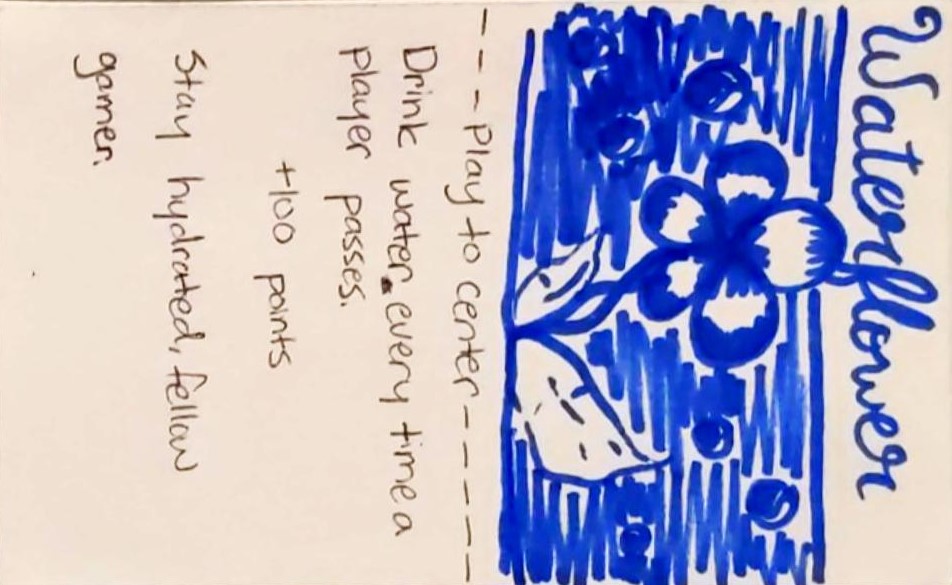 Waterflower
---Play to center-----
Drink water every time a
player passes.
+100 points
Stay hydrated, fellow
gamer.